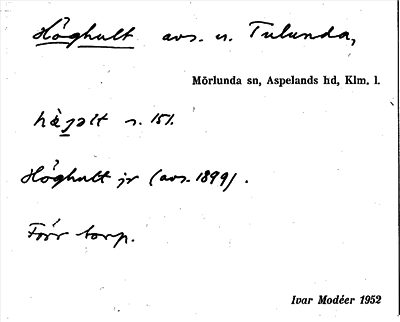 Höghult avs. u. Tulunda,
Mörlunda sn, Aspelands hd, Klm. l.
hö̀galt s. 151.
Höghult jr (avs. 1899).
Förr torp.
Ivar Modéer 1952